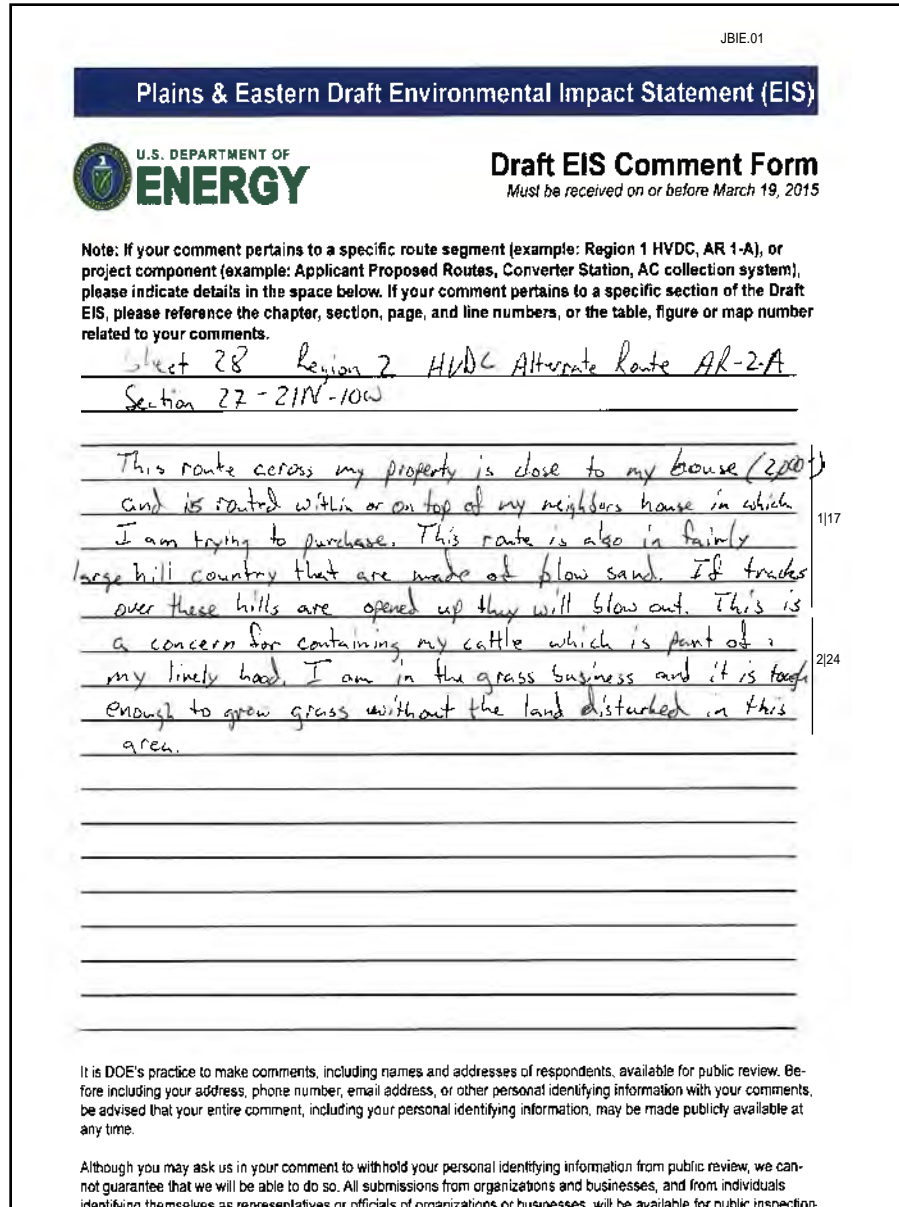 JBIE.01
Plains & Eastern Draft Environmental Impact Statement (EIS)
U.S. DEPARTMENT OF
ENERGY
Draft EIS Comment Form
Must be received on or before March 19, 2015
Note: If your comment pertains to a specific route segment (example: Region 1 HVDC, AR 1-A), or
project component (example: Applicant Proposed Routes, Converter Station, AC collection system),
please indicate details in the space below. If your comment pertains to a specific section of the Draft
EIS, please reference the chapter, section, page, and line numbers, or the table, figure or map number
related to your comments.
Sheet 28 Region 2 HVDC Alternate Route AR-2-A
Section 27-21N-10W
This route across my property is close to my house (2,000
and is routed within or on top of my neighbors house in which
1|17
I am trying to purchase. This route is also in fairly
large hill country that are made of blow sand. If tracks
over these hills are opened up they will blow out. This is
a concern for containing my cattle which is part of
2|24
my lively hood. I am in the grass business and it is tough
enough to grow grass without the land disturbed in this
area.
It is DOE's practice to make comments, including names and addresses of respondents, available for public review. Be-
fore including your address, phone number, email address, or other personal identifying information with your comments,
be advised that your entire comment, including your personal identifying information, may be made publicly available at
any time.
Although you may ask us in your comment to withhold your personal identifying information from public review, we can-
not guarantee that we will be able to do so. All submissions from organizations and businesses, and from individuals
identifying themselves as representatives or officials of organizations or businesses, will be available for public inspection